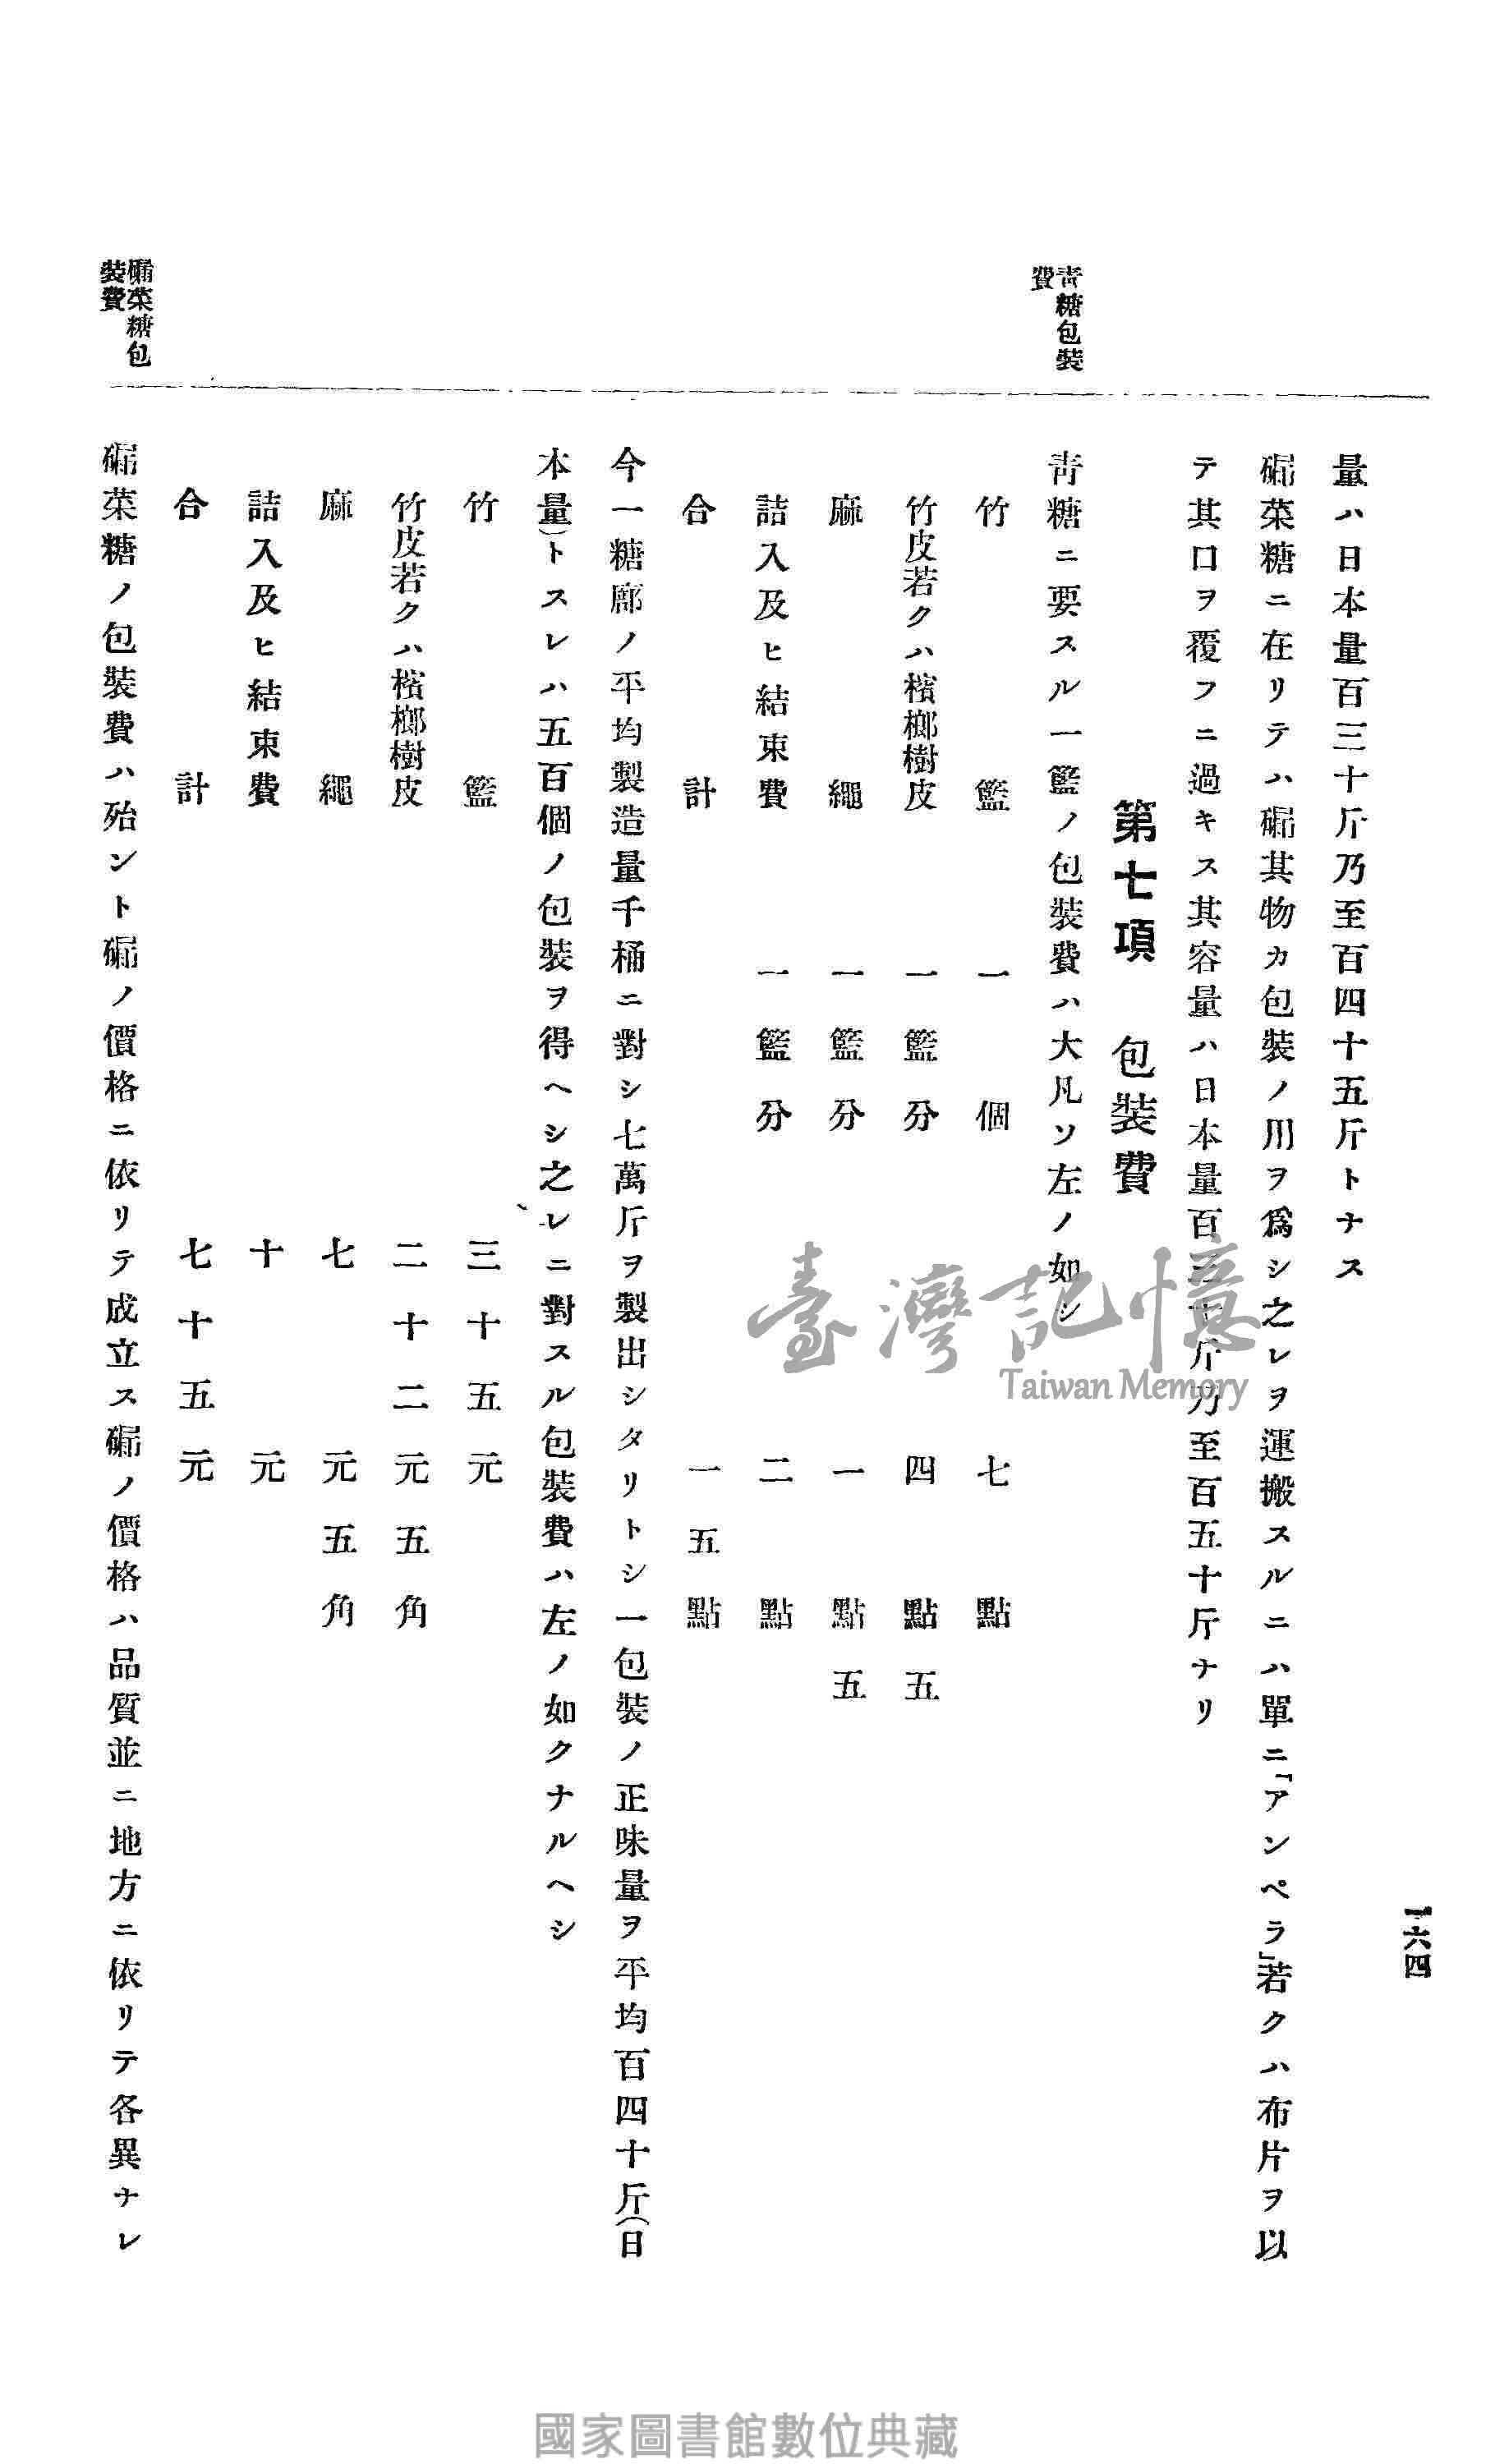 一六四
量ハ日本量百三十斤乃至百四十五斤トナス
磠菜糖ニ在リテハ磠其物カ包裝ノ用ヲ爲シ之レヲ運搬スルニハ單ニ「アンペラ」若クハ布片ヲ以
テ其口ヲ覆フニ過キス其容量ハ日本量百三十斤乃至百五十斤ナリ
第七項 包裝費
靑糖包裝費
靑糖ニ要スル一籃ノ包裝費ハ大凡ソ左ノ如シ
竹籃 一個 七點
竹皮若クハ檳榔樹皮 一籃分 四點五
麻繩 一籃分 一點五
詰入及ヒ結束費 一籃分 二點
合計 一五點
今一糖廍ノ平均製造量千桶ニ對シ七萬斤ヲ製出シタリトシ一包裝ノ正味量ヲ平均百四十斤(日
本量)トスレハ五百個ノ包裝ヲ得ヘシ之レニ對スル包裝費ハ左ノ如クナルヘシ
竹籃 三十五元
竹皮若クハ檳榔樹皮 二十二元五角
麻繩 七元五角
詰入及ヒ結束費 十元
合計 七十五元
磠菜糖包裝費
磠菜糖ノ包裝費ハ殆ント磠ノ價格ニ依リテ成立ス磠ノ價格ハ品質並ニ地方ニ依リテ各異ナレ
臺灣記憶
Taiwan Memory
國家圖書館數位典藏